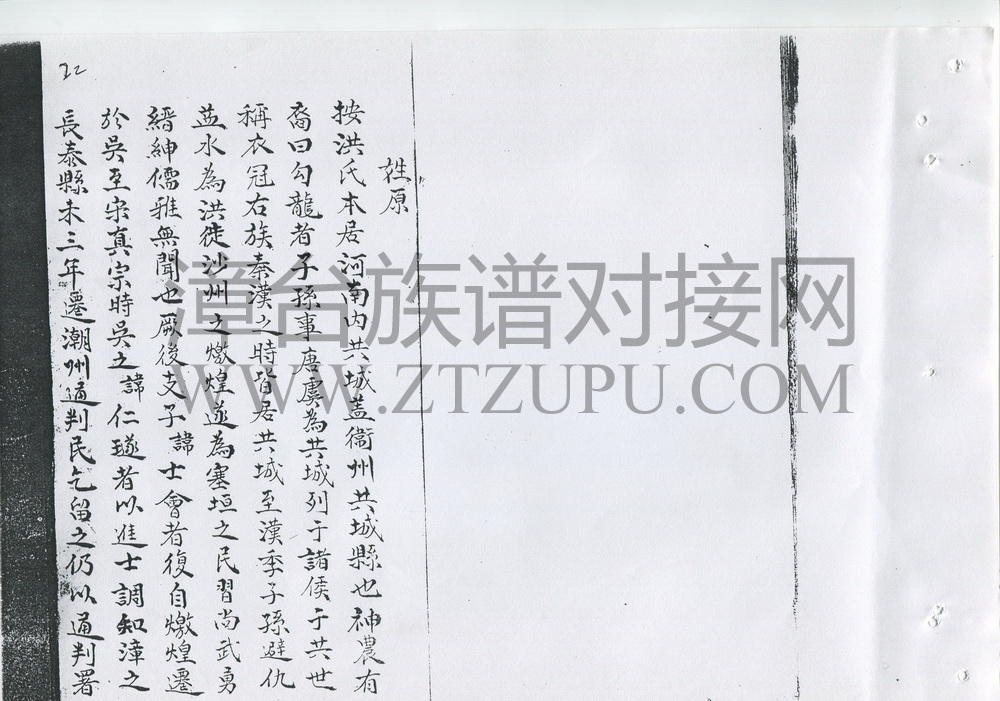 姓原
按洪氏本居河南內共城蓋衞州共城縣也神農有
裔曰勾龍者子孫事唐虞為共城列于諸侯于共世
稱衣冠右族秦漢之時皆居共城至漢季子孫避仇
益水為洪徙沙州之燉煌遂為塞垣之民習尚武勇
縉紳儒雅無聞也厥後支子諱士會者復自燉煌遷
於吳至宋真宗時吳之諱仁璲者以進士調知漳之
長泰縣未三年遷潮州通判民乞留之仍以通判署
22
漳台族谱对接网
WWW.ZTZUPU.COM